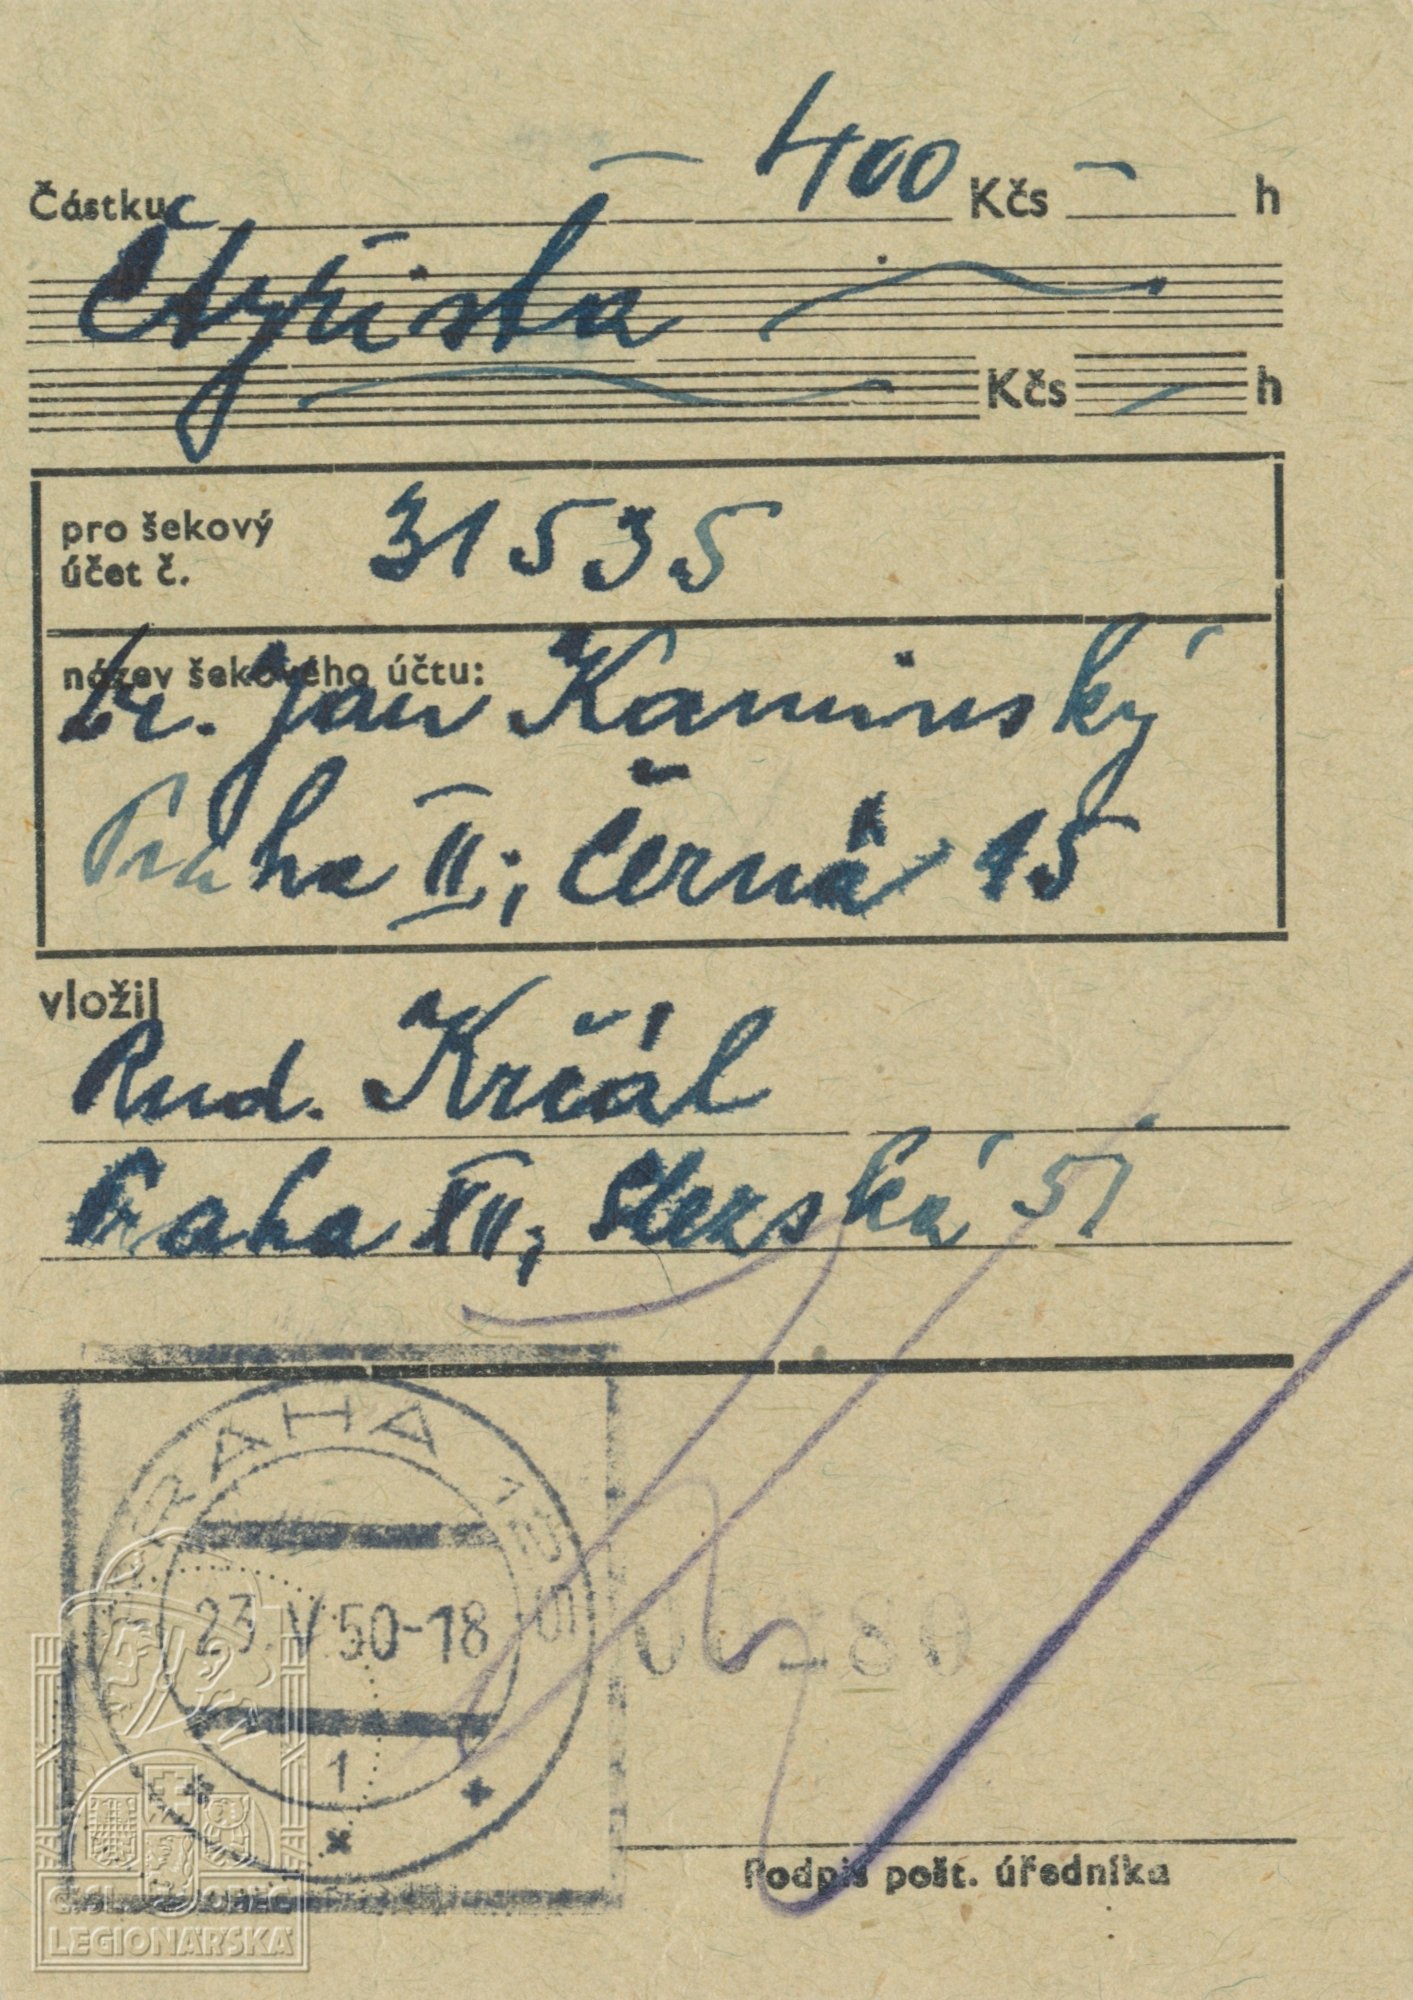 Částku 400 Kčs — h
Čtyřista
Kčs h
pro šekový 31535
účet č.
název šekového účtu:
Dr. Jan Kaminský
Praha II, Černá 15
vložil
Rud. Krčál
Praha XII, Slezská 51
PRAHA 12
23.V.50-18
1
80
Podpis pošt. úředníka
ČSL. OBEC
LEGIONÁŘSKÁ